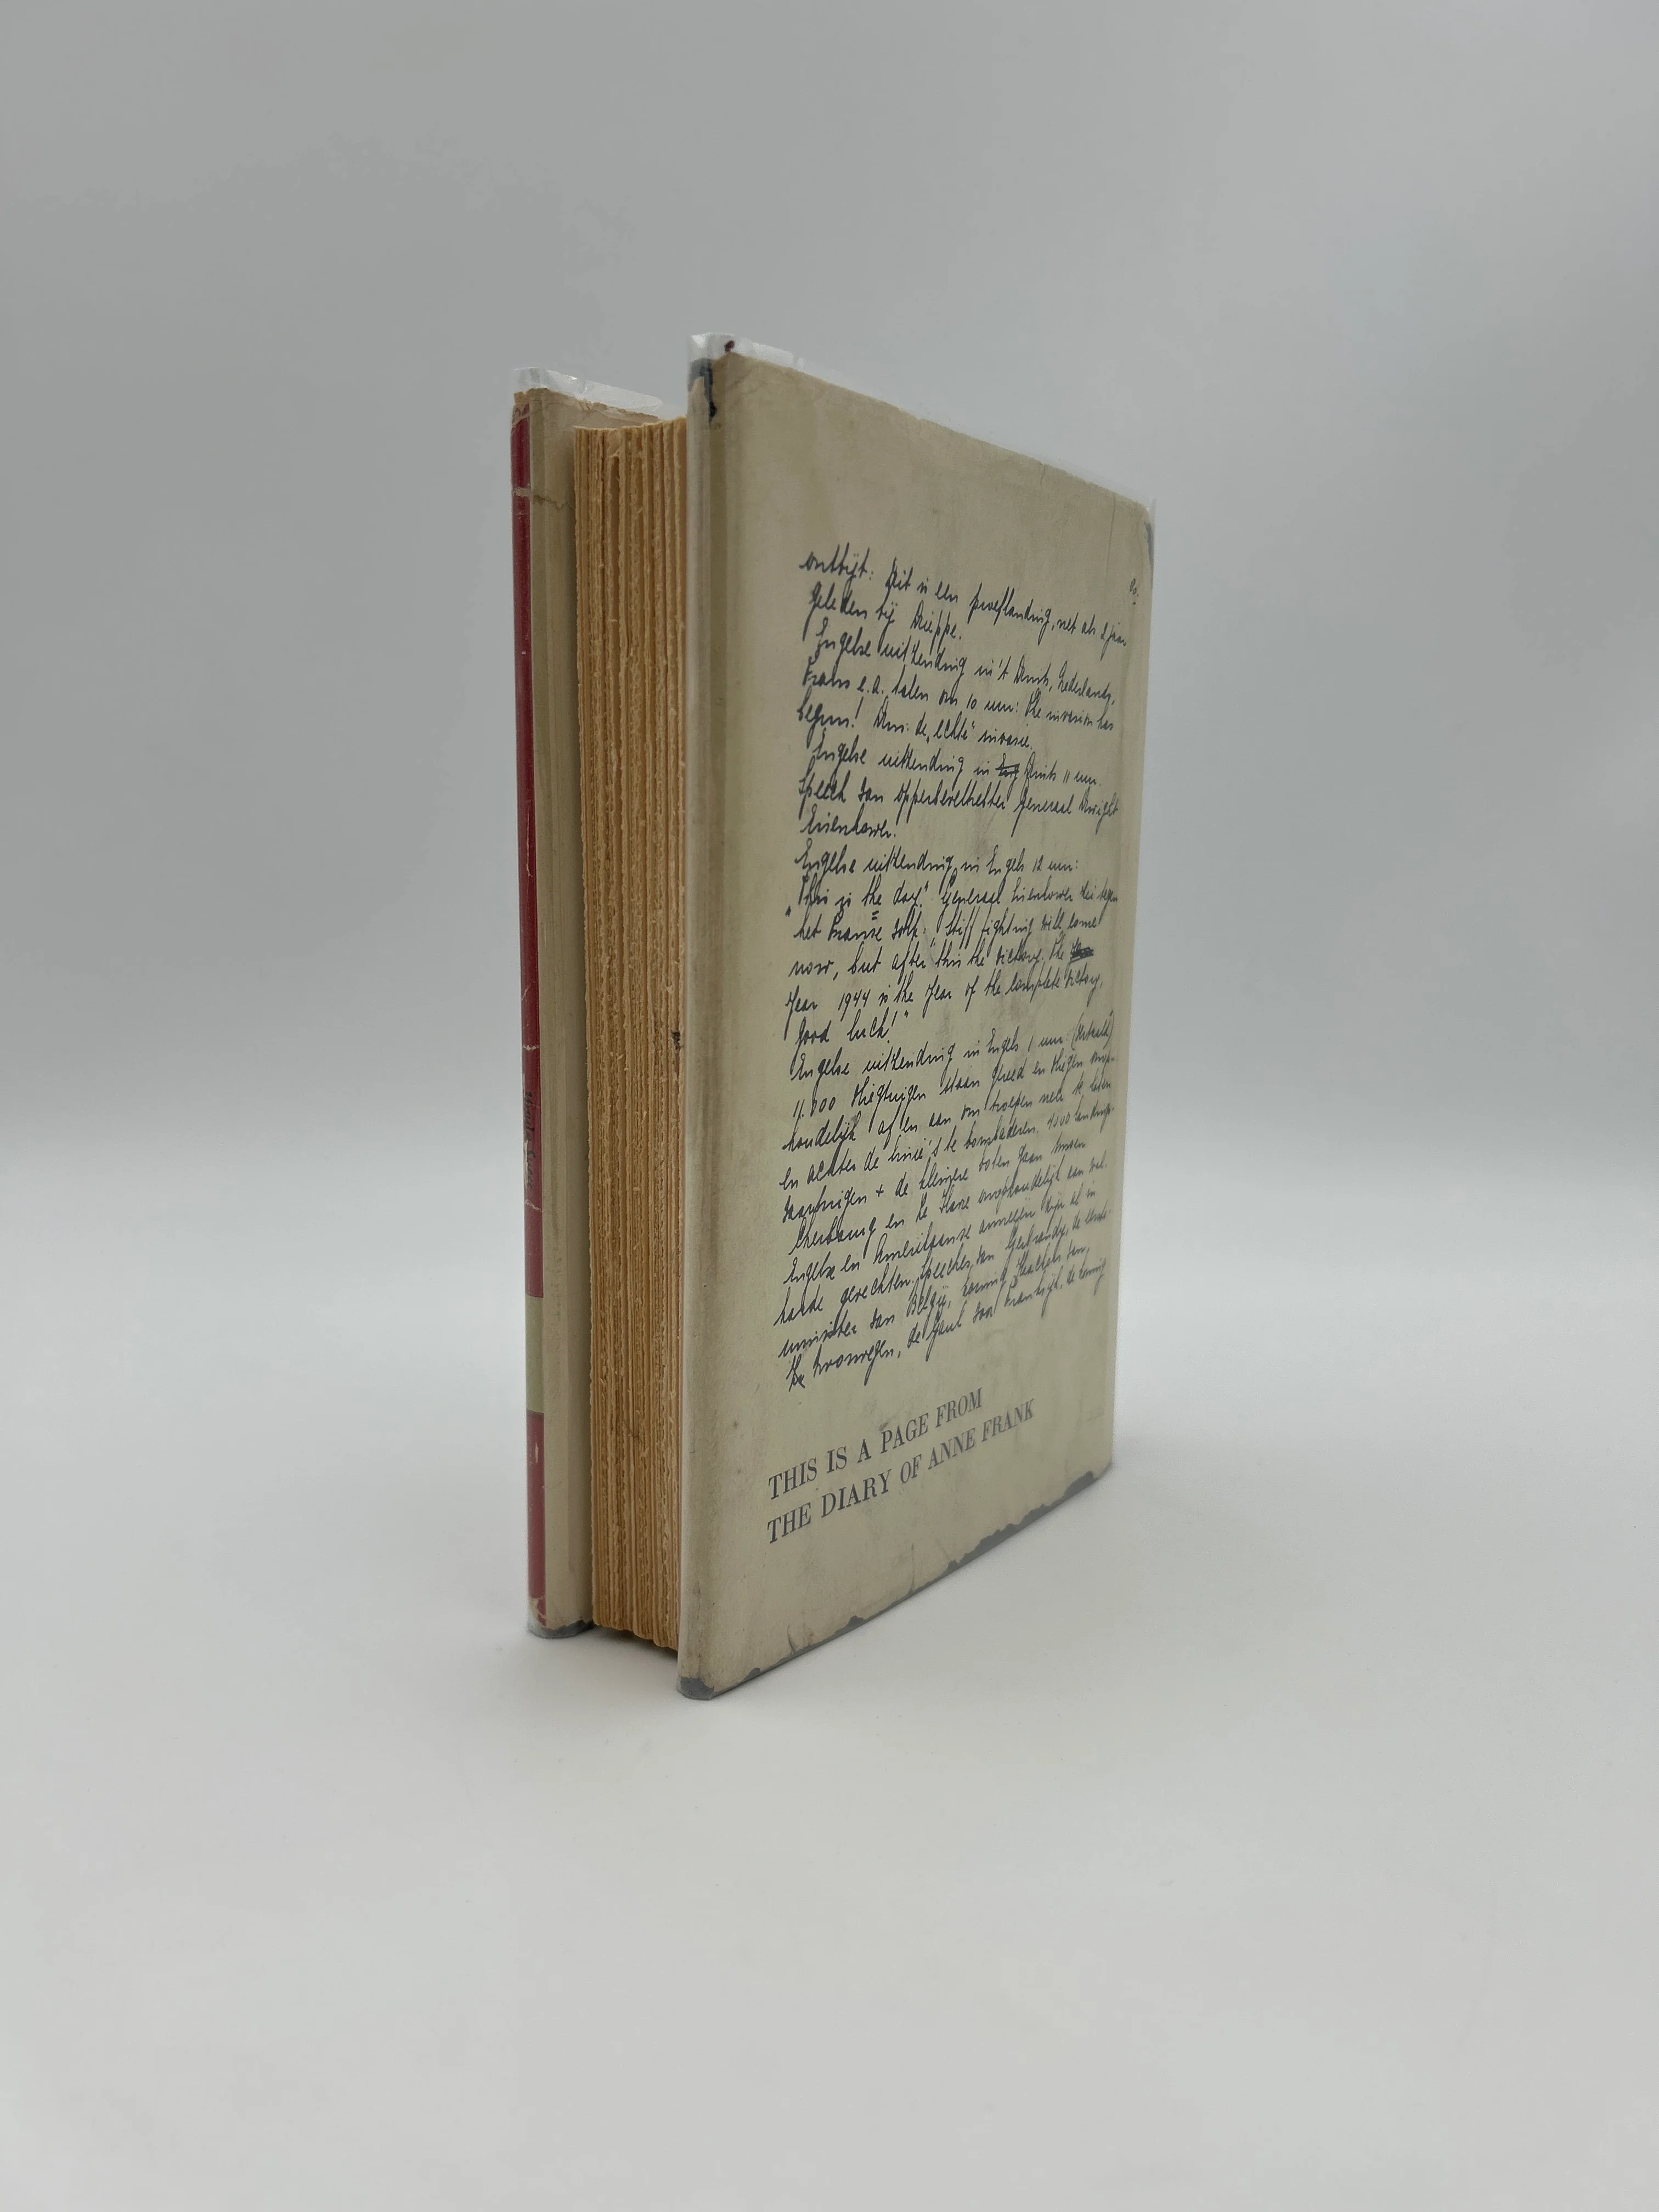 ontbijt: Dit is een proeflanding, net als 2 jaar
geleden bij Dieppe.
Engelse uitzending in 't Duits, Nederlands,
Frans e.a. talen om 10 uur: The invasion has
begun! Dus: de „echte" invasie.
Engelse uitzending in Eng Duits 11 uur
Speech van opperbevelhebber Generaal Dwight
Eisenhower.
Engelse uitzending in Engels 12 uur:
„This is the day." Generaal Eisenhower zei tegen
het Franse volk: "Stiff fighting will come
now, but after this the victory. The
Year 1944 is the Year of the complete victory,
Good luck!"
Engelse uitzending in Engels 1 uur
11.000 vliegtuigen staan gereed en vliegen onop-
houdelijk af en aan om troepen neer te laten
en achter de linie's te bombarderen. 4000 landings-
vaartuigen + de kleinere boten gaan tussen
Cherbourg en Le Havre onophoudelijk aan wal.
Engelse en Amerikaanse armeeën zijn al in
harde gevechten. Speeches van Gerbrandy, de eerste-
minister van België, koning Haakon van
Noorwegen, de Gaul voor Frankrijk, de koning
THIS IS A PAGE FROM
THE DIARY OF ANNE FRANK